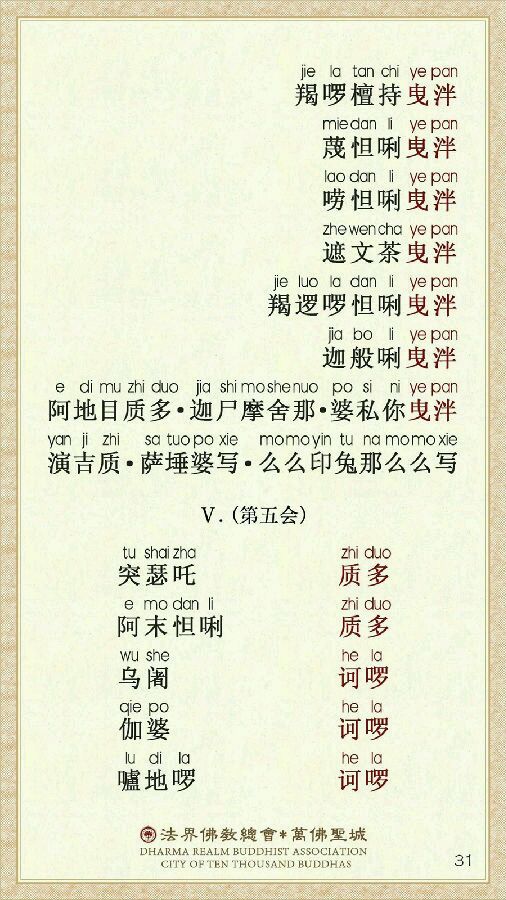 jie la tan chi ye pan
羯啰檀持曳泮
mie dan li ye pan
蔑怛唎曳泮
lao dan li ye pan
唠怛唎曳泮
zhe wen cha ye pan
遮文茶曳泮
jie luo la dan li ye pan
羯逻啰怛唎曳泮
jia bo li ye pan
迦般唎曳泮
e di mu zhi duo jia shi mo she nuo po si ni ye pan
阿地目质多•迦尸摩舍那•婆私你曳泮
yan ji zhi sa tuo po xie mo mo yin tu na mo mo xie
演吉质•萨埵婆写•么么印兔那么么写
V.(第五会)
tu shai zha zhi duo
突瑟吒 质多
e mo dan li zhi duo
阿末怛唎 质多
wu she he la
乌阇 诃啰
qie po he la
伽婆 诃啰
lu di la he la
嚧地啰 诃啰
法界佛教總會•萬佛聖城
DHARMA REALM BUDDHIST ASSOCIATION
CITY OF TEN THOUSAND BUDDHAS
31